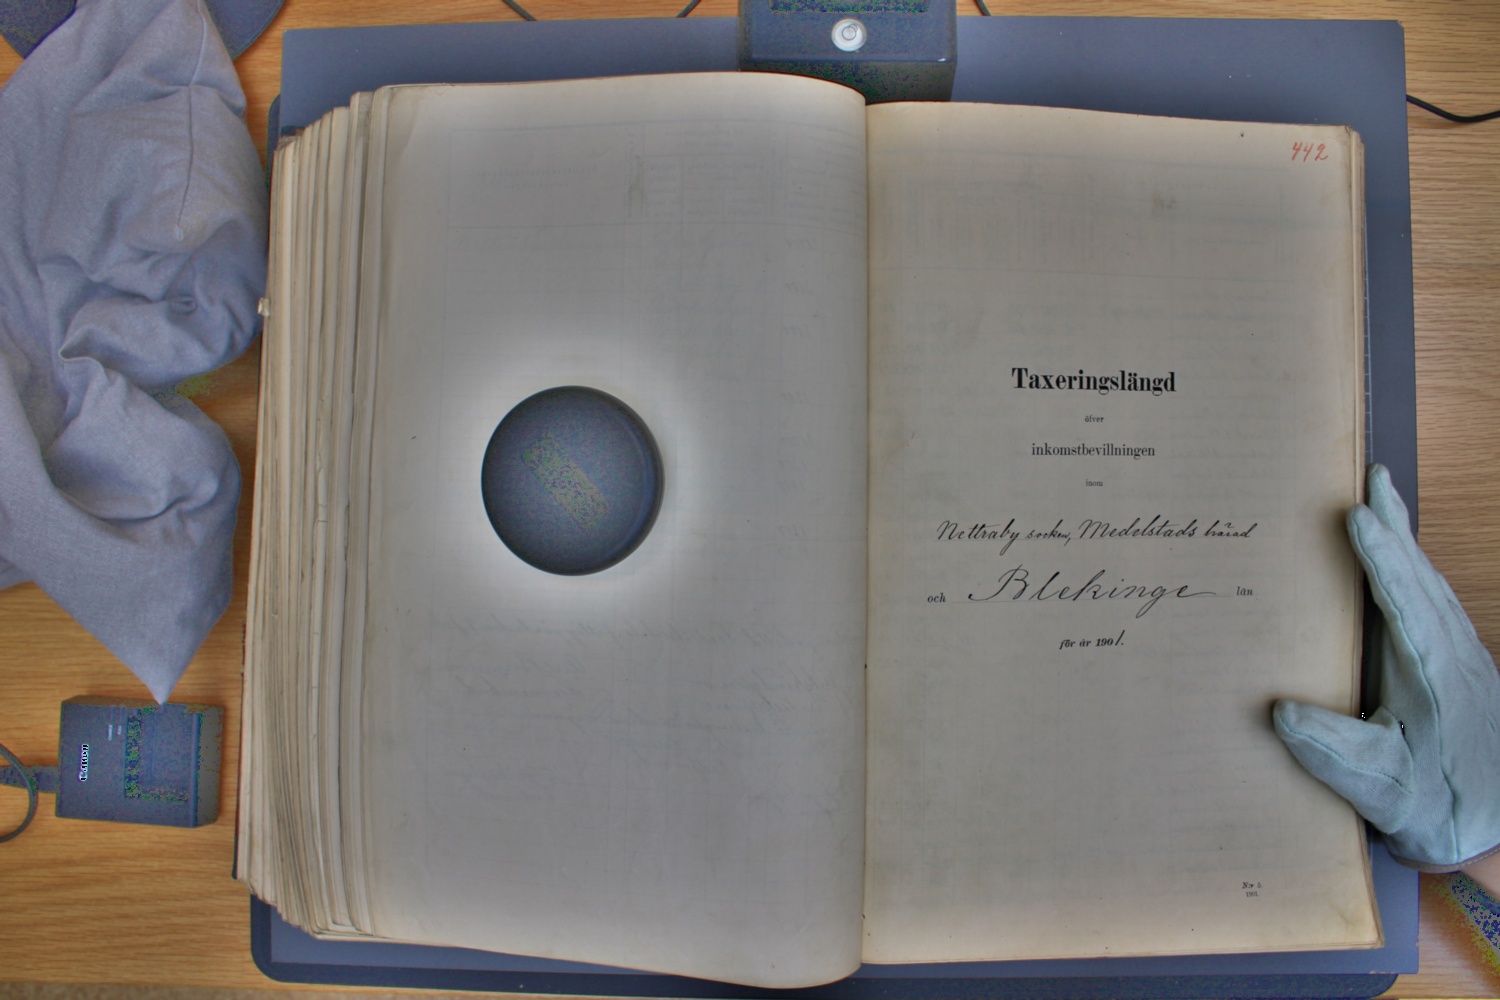 442
Taxeringslängd
öfver
inkomstbevillningen
inom
Nettraby socken, Medelstads härad
och Blekinge län
för år 1901.
N:r 5
1901.